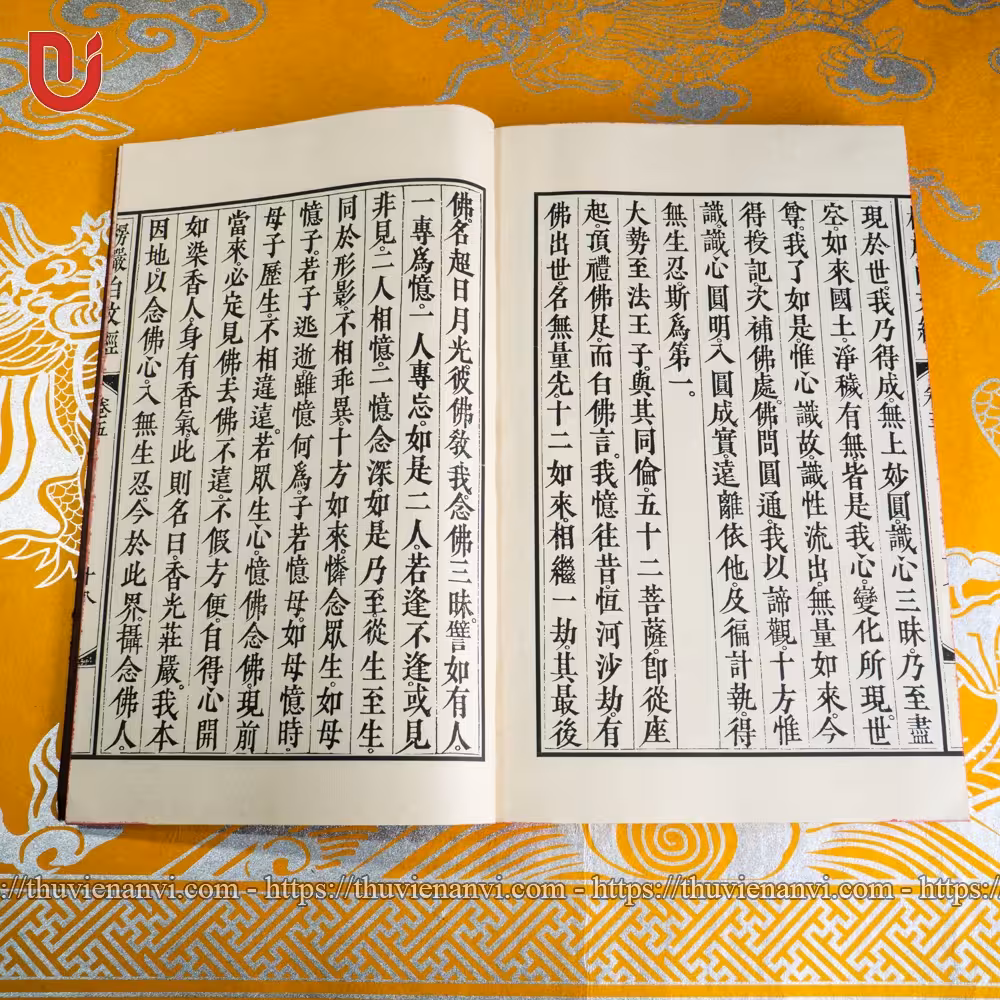 現於世。我乃得成。無上妙圓。識心三昧。乃至盡
空。如來國土。淨穢有無。皆是我心。變化所現。世
尊。我了如是。惟心識故。識性流出。無量如來。今
得授記。次補佛處。佛問圓通。我以諦觀。十方惟
識。識心圓明。入圓成實。遠離依他。及徧計執。得
無生忍。斯爲第一。
大勢至法王子。與其同倫。五十二菩薩。即從座
起。頂禮佛足。而白佛言。我憶往昔。恆河沙劫。有
佛出世。名無量光。十二如來。相繼一劫。其最後
佛。名超日月光。彼佛教我。念佛三昧。譬如有人。
一專爲憶。一人專忘。如是二人。若逢不逢。或見
非見。二人相憶。二憶念深。如是乃至。從生至生。
同於形影。不相乖異。十方如來。憐念眾生。如母
憶子。若子逃逝。雖憶何爲。子若憶母。如母憶時。
母子歷生。不相違遠。若眾生心。憶佛念佛。現前
當來。必定見佛。去佛不遠。不假方便。自得心開
如染香人。身有香氣。此則名曰。香光莊嚴。我本
因地。以念佛心。入無生忍。今於此界。攝念佛人。
楞嚴白文經 卷五 十八
://thuvienanvi.com - https://thuvienanvi.com - https://thuvienanvi.com - https:/